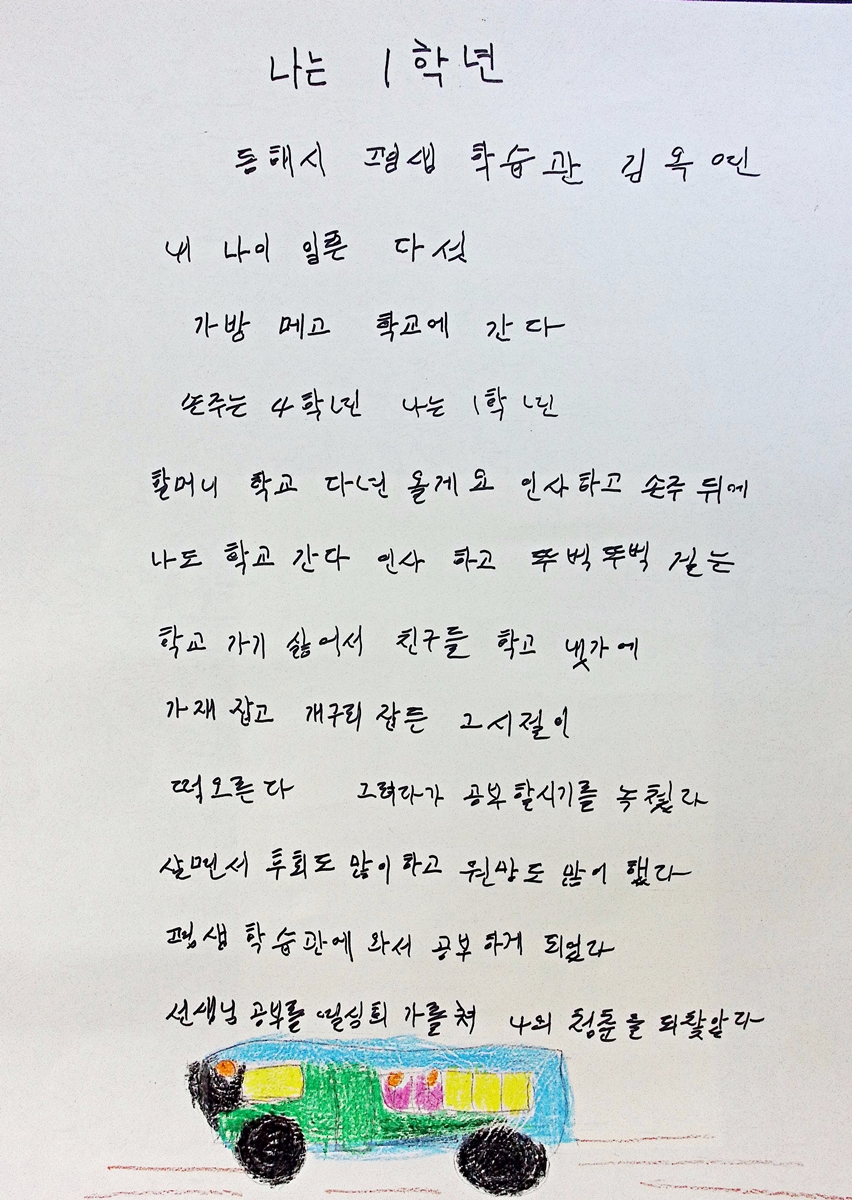 나는 1학년
동해시 평생 학습관 김옥연
내 나이 일흔 다섯
가방 메고 학교에 간다
손주는 4학년 나는 1학년
할머니 학교 다년 올게요 인사하고 손주 뒤에
나도 학교 간다 인사 하고 뚜벅뚜벅 걷는
학교 가기 싫어서 친구들 학고 냇가에
가재 잡고 개구리 잡든 그시절이
떡오른다 그려다가 공부할시기를 녹칠라
살면서 후회도 많이하고 원망도 많이 했다
평생 학습관에 와서 공부하게 되었다
선생님 공부를 열심히 가를쳐 나의 청춘을 되찿았다